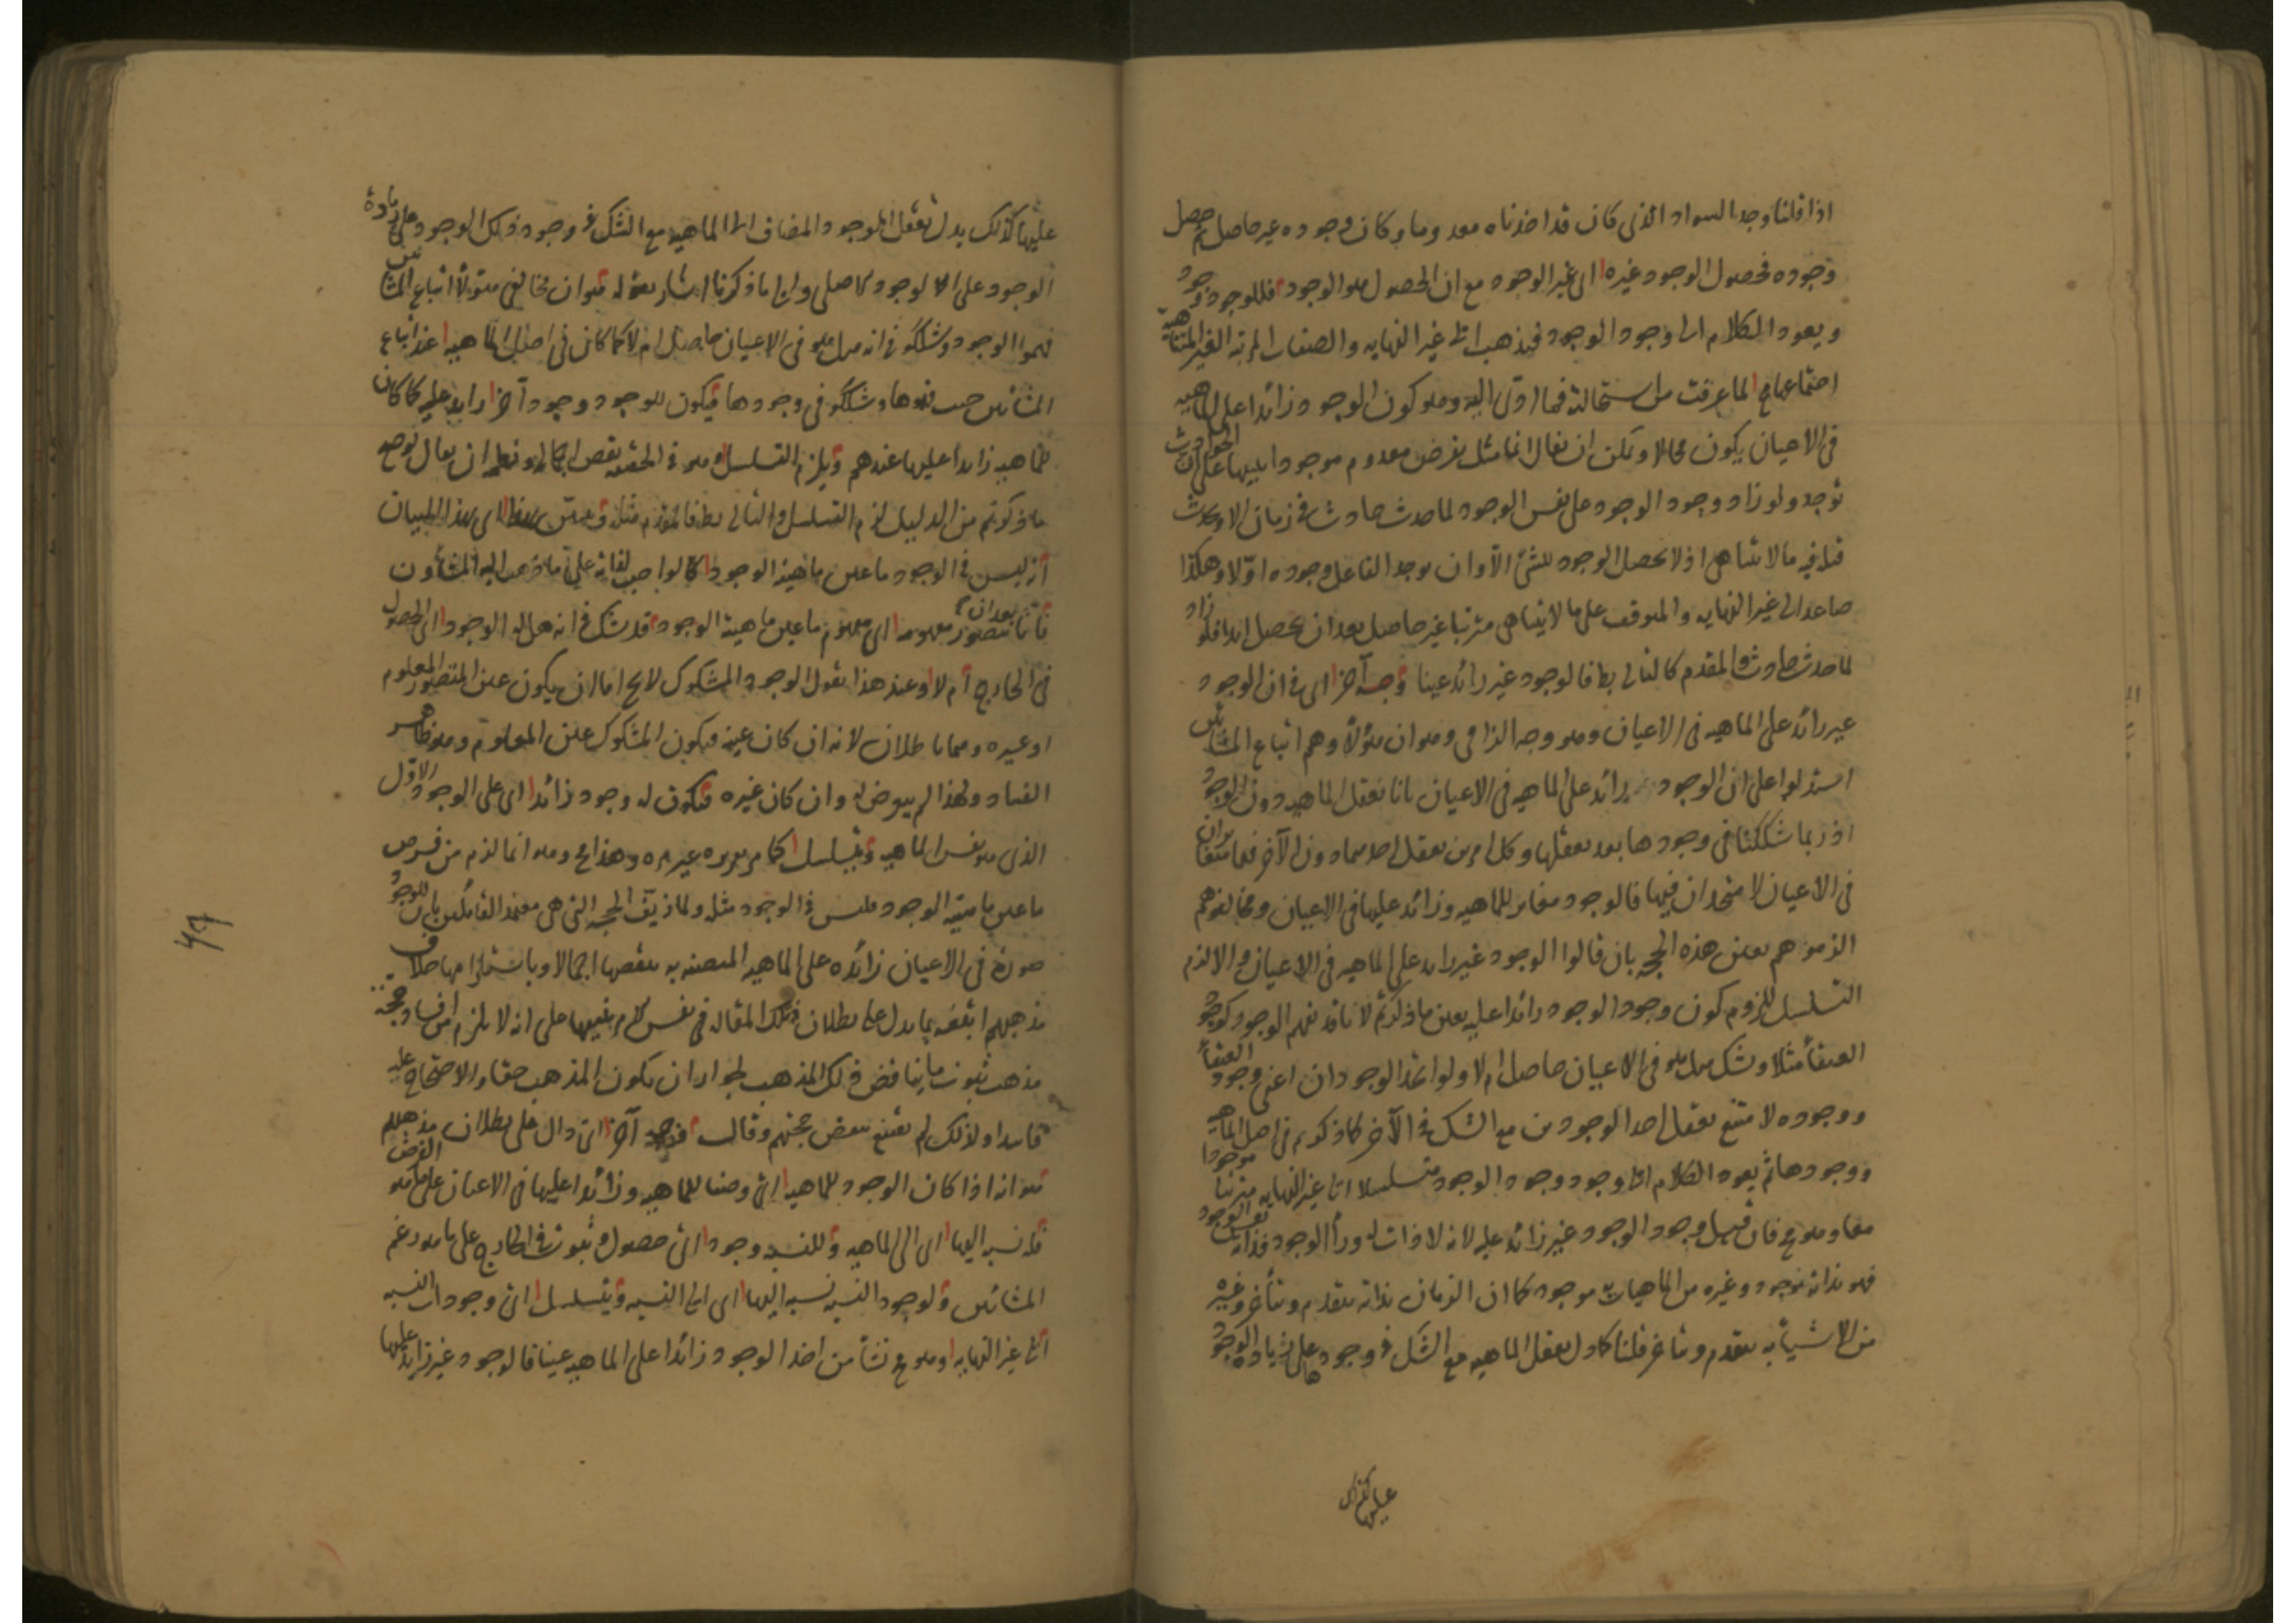 اذا قلنا وجد السواد الذى كان قد اخذناه معدوما وكان وجوده غير حاصل ثم حصل
وجوده فحصول الوجود غيره اى غير الوجود مع ان الحصول هو الوجود فللوجود وجود
ويعود الكلام الى وجود الوجود فيذهب الى غير النهايه والصفات المرتبه الغير المتناهيه
اجتماعها مح لما عرفت من استحالته فما ادّى اليه وهو كون الوجود زائدا على الماهيه
فى الاعيان يكون محالا ويمكن ان يقال انما مثل بفرض معدوم موجودا بينها على ان الحوادث
توجد ولو زاد وجود الوجود على نفس الوجود لما حدث حادث فى زمان الا ويحدث
قبله فيه ما لا يتناهى اذ لا يحصل الوجود للشئ الّا وان يوجد الفاعل وجوده اوّلا وهكذا
صاعدا الى غير النهايه والموقوف على ما لا يتناهى مترتبا غير حاصل بعد ان يحصل ابدا فلو زاد
لما حدث حادث والمقدم كالتالى بط فالوجود غير زائد عينا وجه آخر اى فى ان الوجود
غير زائد على الماهيه فى الاعيان وهو وجه الزامى وهو ان هؤلاء وهم اتباع المشائين
استدلوا على ان الوجود زائد على الماهيه فى الاعيان بانا نعقل الماهيه دون الوجود
اذ ربما شككنا فى وجودها بعد تعقلها وكل امرين يعقل احدهما دون الآخر فهما متغايران
فى الاعيان لا متحدان فيها فالوجود مغاير للماهيه وزائد عليها فى الاعيان ومخالفوهم
الزموهم بعين هذه الحجه بان قالوا الوجود غير زايد على الماهيه فى الاعيان والا لزم
التسلسل للزوم كون وجود الوجود زائدا عليه بعين ما ذكرتم لانا قد نفهم الوجود كوجود
العنقاء مثلا ونشك هل هو فى الاعيان حاصل ام لا ولو اتحد الوجودان اعنى وجود العنقاء
ووجوده لامتنع تعقل احد الوجودين مع الشك فى الآخر كما ذكرتم فى اصل الماهيه
ووجودها ثم يعود الكلام الى وجود وجود الوجود متسلسلا الى غير النهايه مترتبا موجودا
معا وهو مح فان قيل وجود الوجود غير زائد عليه لانه لا ذات له وراء الوجود فذاته نفس الوجود
فهو بذاته موجود وغيره من الماهيات به موجود كما ان الزمان بذاته يتقدم ويتأخر وغيره
من الاشياء به يتقدم ويتأخر قلنا كما دل تعقل الماهيه مع الشك فى وجودها على زيادة الوجود
عليها كذلك
عليها كذلك يدل تعقل الوجود المضاف الى الماهيه مع الشك فى وجود ذلك الوجود على زيادة
الوجود على الوجود الاصلى والى ما ذكرنا اشار بقوله هو ان مخالفى هؤلاء اتباع المشائين
فهموا الوجود وشكّوا فى انه هل هو فى الاعيان حاصل ام لا كما كان فى اصل الماهيه عند اتباع
المشائين حيث فهموها وشكّوا فى وجودها فيكون للوجود وجود آخر زايد عليه كما كان
للماهيه زايدا عليها عندهم ويلزم التسلسل وهو فى الحقيقه نقض اجمالى ونظمه ان يقال لو صح
ما ذكرتم من الدليل لزم التسلسل والتالى بط فالمقدم مثله وتبيّن بهذا اى بهذا البيان
انه ليس فى الوجود ما عين ماهيته الوجود كالواجب لذاته على ما ذهب اليه المشاؤون
فانّا بعد ان نتصور مفهومه اى مفهوم ما عين ماهيته الوجود قد نشك فى انه هل له الوجود اى الحصول
فى الخارج ام لا وعند هذا نقول الوجود المشكوك لا يخ اما ان يكون عين المتصور المعلوم
او غيره وهما باطلان لانه ان كان عينه فيكون المشكوك عين المعلوم وهو ظاهر
الفساد ولهذا لم يتعرض له وان كان غيره فيكون له وجود زائد اى على الوجود الاوّل
الذى هو نفس الماهيه ويتسلسل كما مر تقريره غير مره وهذا مح وهو انما لزم من فرض
ما عين ماهيته الوجود فليس فى الوجود مثله ولما زيّف الحجه التى هى معتمد القائلين بان للوجود
صورة فى الاعيان زائده على الماهيه المتعينه به بنقضها اجمالا وباستلزامها خلاف
مذهبهم اتبعه بما يدل على بطلان تلك المقاله فى نفس الامر تنبيها على انه لا يلزم من فساد حجه
مذهب ثبوت ما يناقض ذلك المذهب لجواز ان يكون المذهب حقا والاحتجاج عليه
فاسدا ولذلك لم يقتنع بنقض حجتهم وقال وجه آخر اى دال على بطلان مذهبهم
هو انه اذا كان الوجود للماهيه اى وصفا للماهيه وزائدا عليها فى الاعيان على ما هو الفرض
فله نسبه اليها اى الى الماهيه وللنسبه وجود اى حصول وثبوت فى الخارج على ما هو زعم
المشائين ولوجود النسبه نسبه اليها اى الى النسبه ويتسلسل اى وجودات النسبه
الى غير النهايه وهو مح نشأ من اخذ الوجود زائدا على الماهيه عينا فالوجود غير زايد عليها